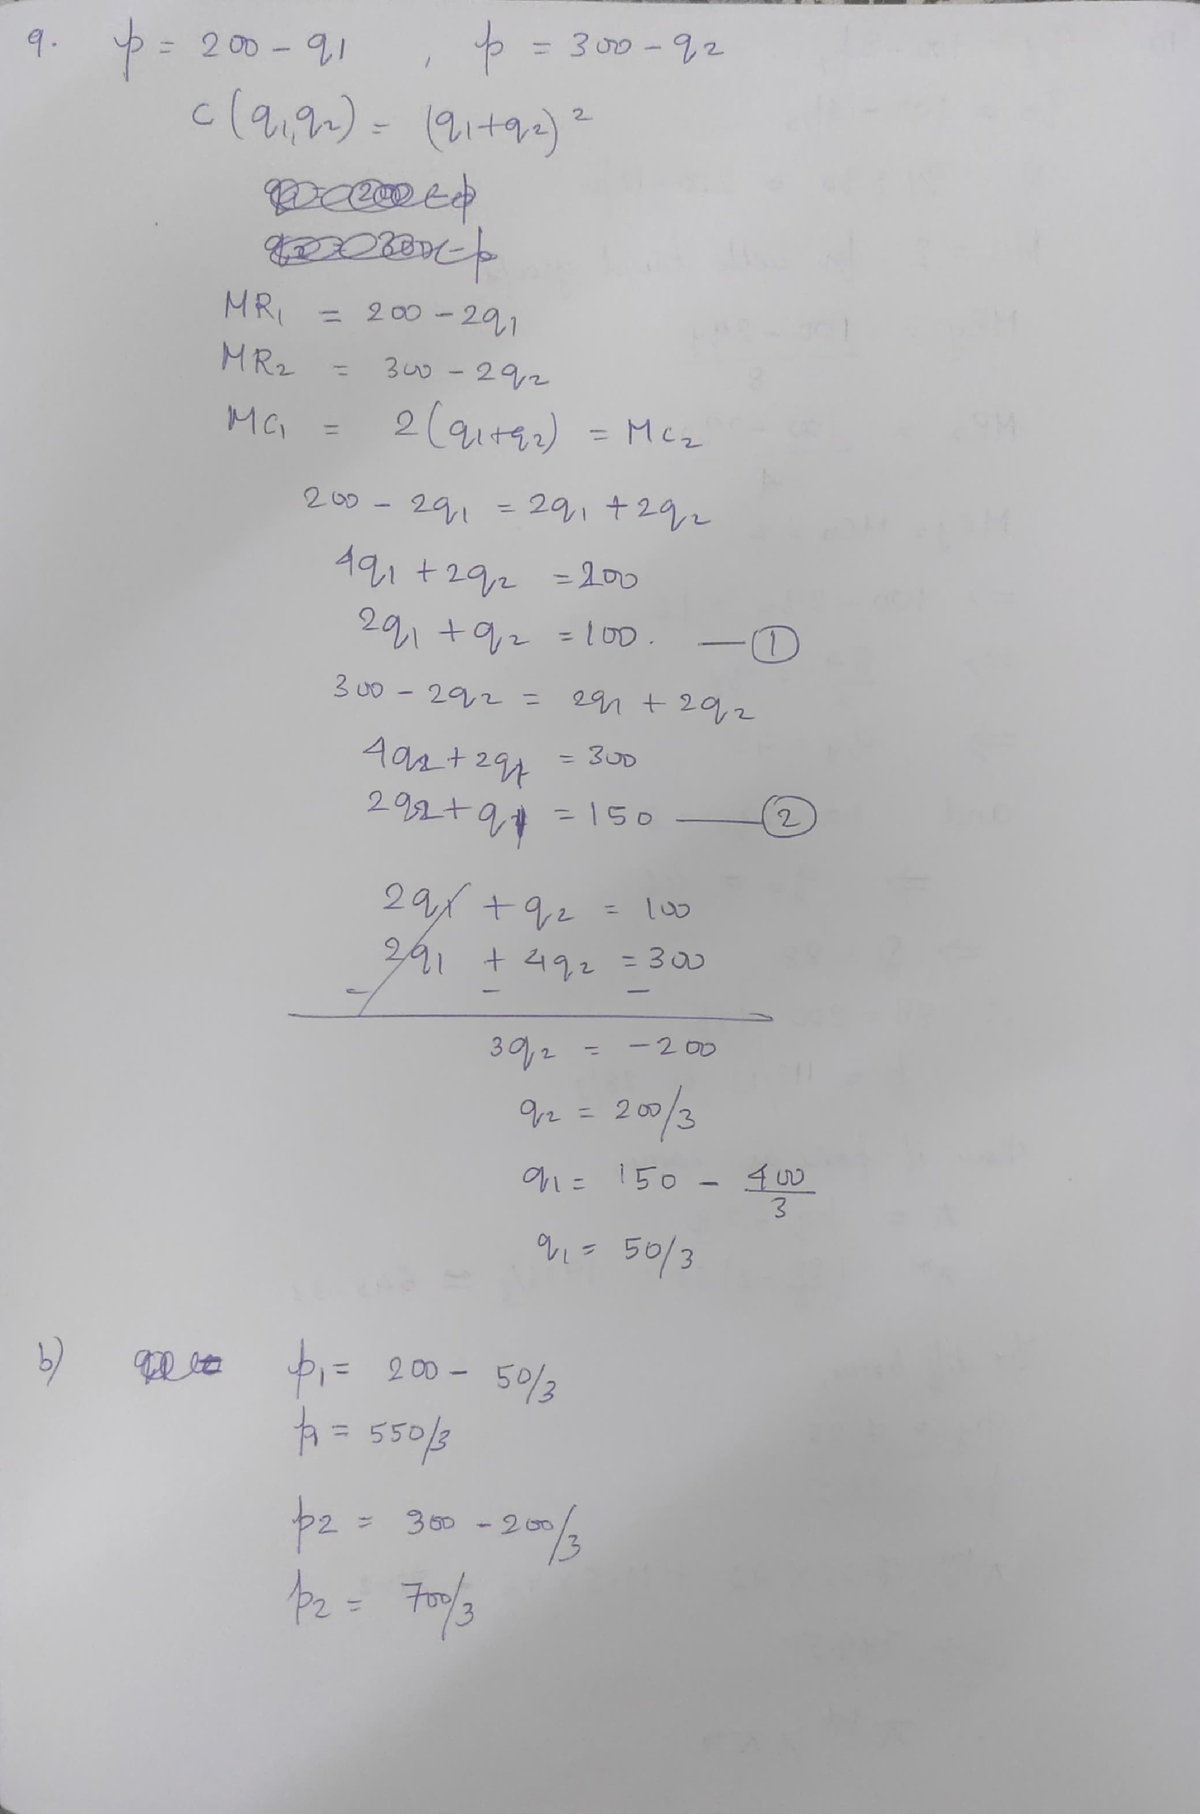 9. p = 200 - q1 , p = 300 - q2
C (q1,q2) = (q1+q2)²
MR1 = 200 - 2q1
MR2 = 300 - 2q2
MC1 = 2(q1+q2) = MC2
200 - 2q1 = 2q1 + 2q2
4q1 + 2q2 = 200
2q1 + q2 = 100. — ①
300 - 2q2 = 2q1 + 2q2
4q2 + 2q1 = 300
2q2 + q1 = 150 — ②
2q1 + q2 = 100
2q1 + 4q2 = 300
- - -
3q2 = -200
q2 = 200/3
q1 = 150 - 400/3
q1 = 50/3
b) p1 = 200 - 50/3
p1 = 550/3
p2 = 300 - 200/3
p2 = 700/3